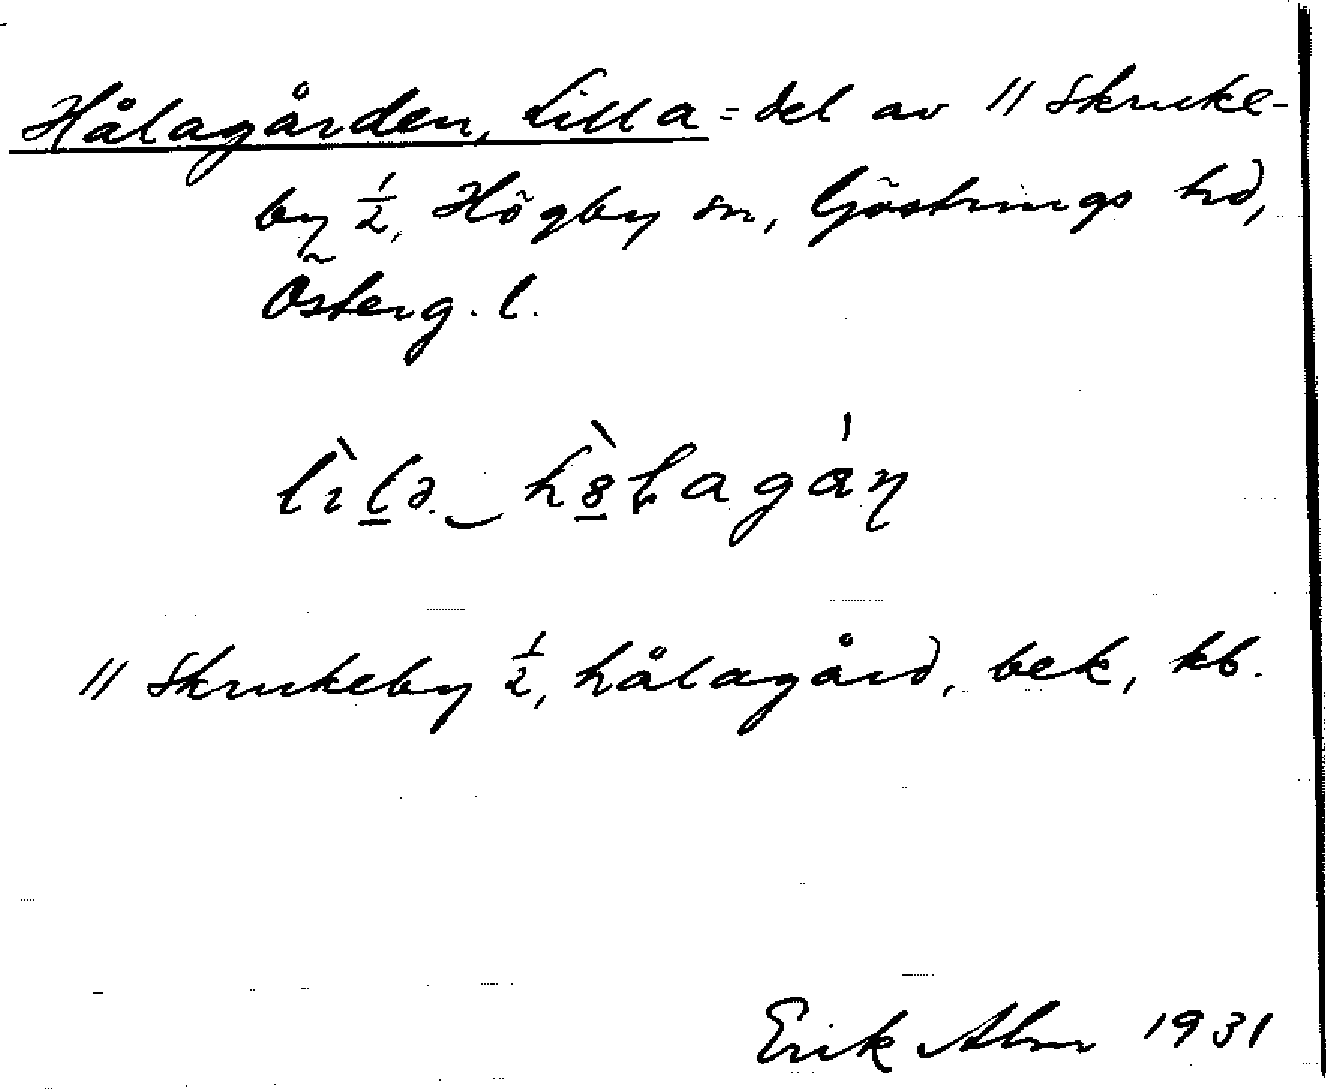 Hålagården, Lilla = del av // Skruke-
by ½, Högby sn, Göstrings hd,
Österg. l.
// Skrukeby ½, hålagård, bek, kb.
Erik Alm 1931